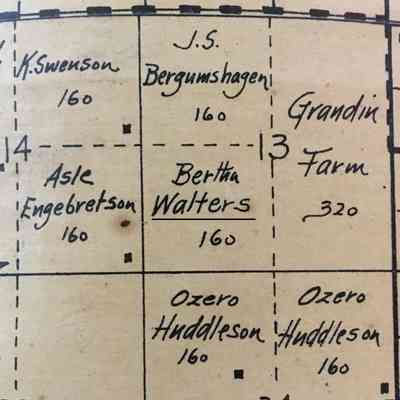 K. Swenson
160
J.S.
Bergumshagen
160
Grandin
Farm
320
14
13
Asle
Engebretson
160
Bertha
Walters
160
Ozero
Huddleson
160
Ozero
Huddleson
160